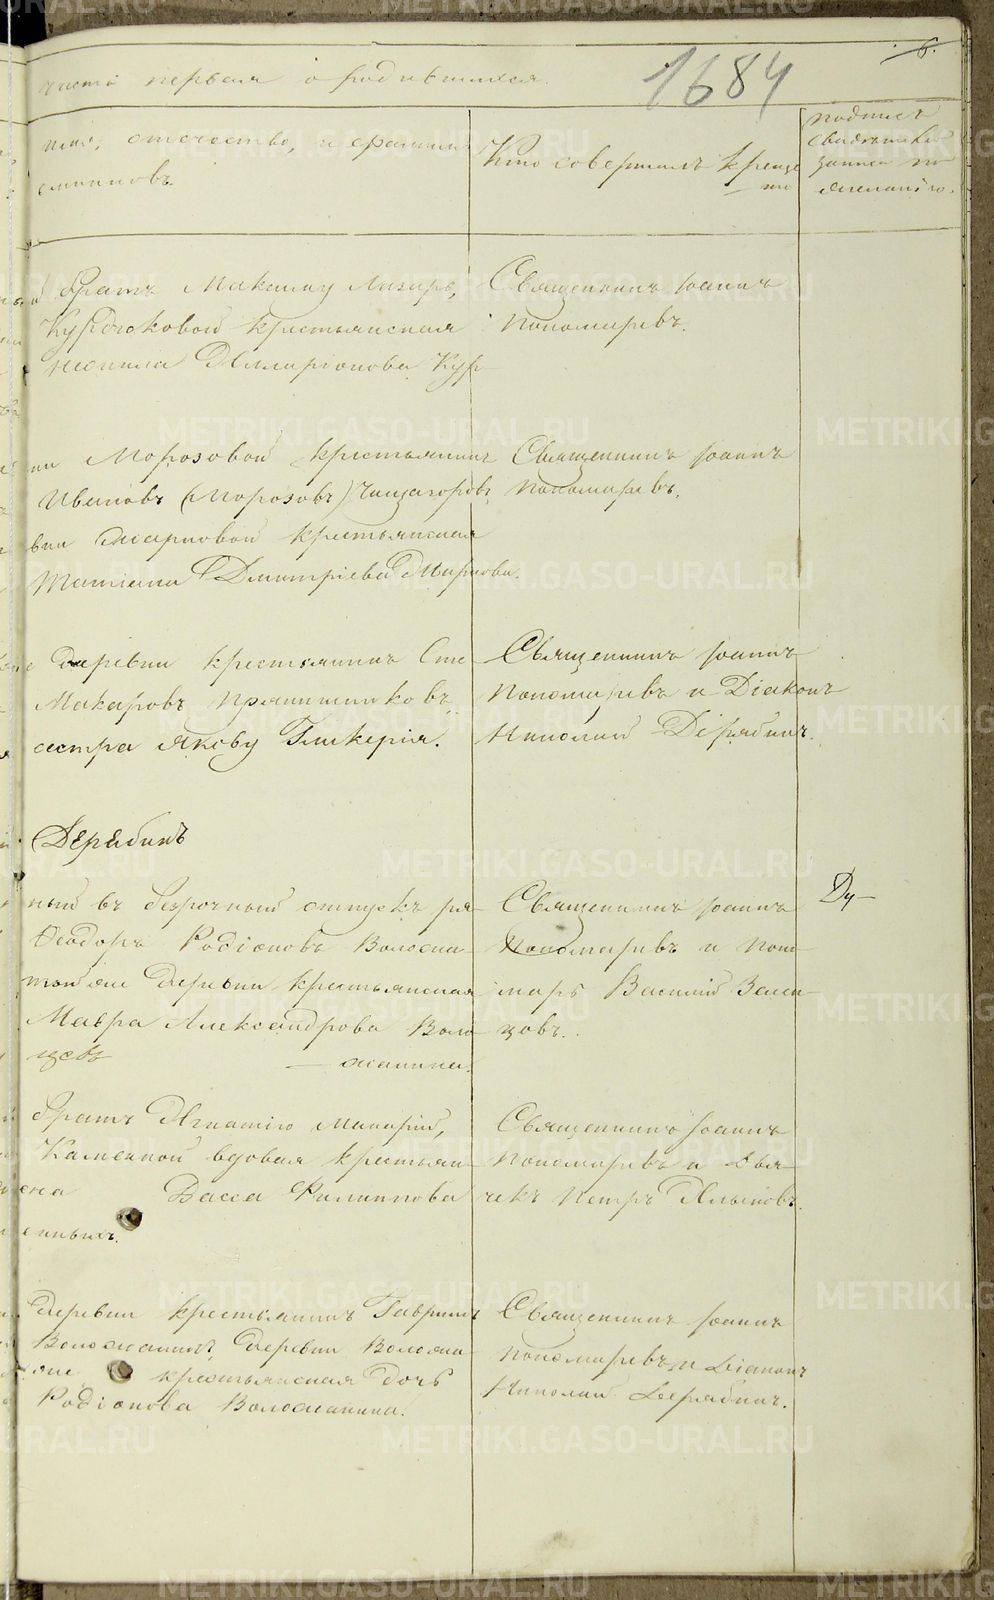 6.
часть первая о родившихся.
1684
имя, отчество, и фамилия
Кто совершалъ крещение
подпись свидѣтелей записи по желанію.
братъ Максиму Лазарь,
Курдюковой крестьянская
Илларіонова Кур
Священникъ Іоаннъ
Пономаревъ.
Морозовой крестьянинъ
Ивановъ (Морозовъ)
вни Марповой крестьянская
Татіана Дмитріева
Священникъ Іоаннъ
Пономаревъ.
деревни крестьянинъ Сте
Макаровъ Прянишниковъ
сестра Якову Гликерія.
Священникъ Іоаннъ
Пономаревъ и Діаконъ
Николай Дерябинъ.
Дерябинъ
ный въ безрочный отпускъ ря
Ѳеодоръ Родіоновъ Воложа
той же деревни крестьянская
Мавра Александрова Воло
жанина.
цевъ
Священникъ Іоаннъ
Пономаревъ и Поно
марь Василій
цовъ.
Ду
братъ Игнатію Макарій,
Каменной вдовая крестьян
ская Васса Филиппова
Священникъ Іоаннъ
Пономаревъ и Дья
чекъ Петръ
деревни крестьянинъ Гавріилъ
Воложанинъ, деревни Воложа
же крестьянская дочь
Родіонова Воложанина.
Священникъ Іоаннъ
Пономаревъ и Діаконъ
Николай Дерябинъ.
METRIKI.GASO-URAL.RU